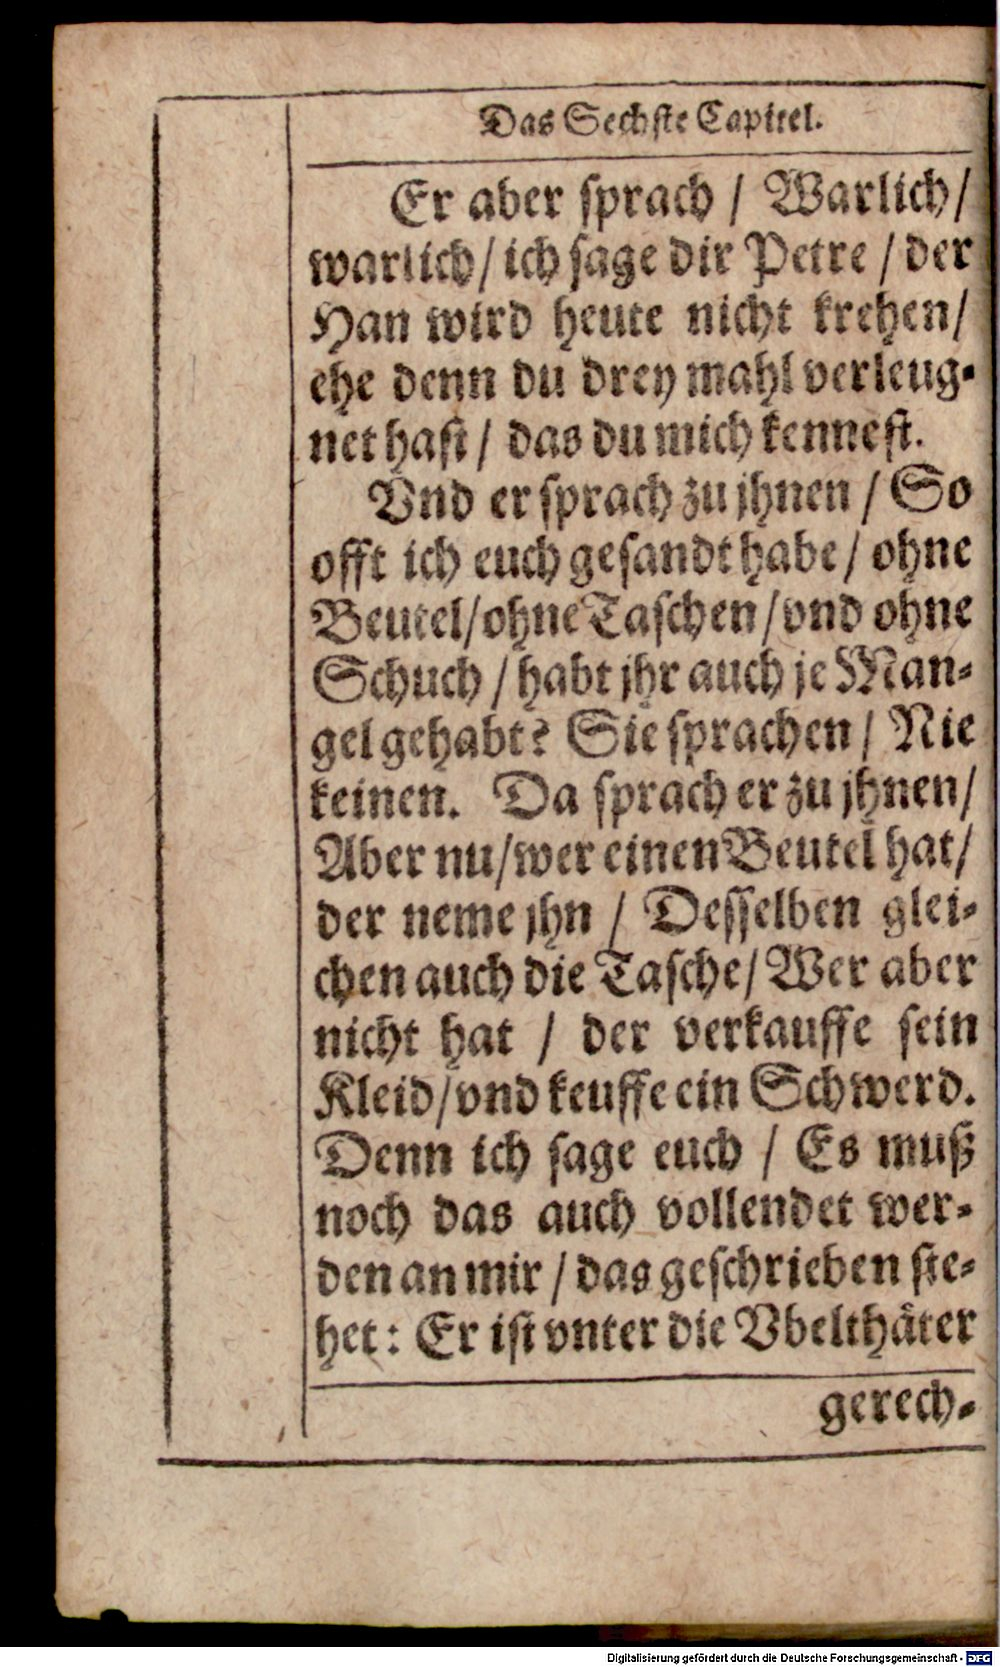 Das Sechste Capitel.
Er aber sprach / Warlich/
warlich/ ich sage dir Petre / der
Han wird heute nicht krehen/
ehe denn du drey mahl verleug-
net hast / das du mich kennest.
Vnd er sprach zu jhnen / So
offt ich euch gesandt habe / ohne
Beutel/ohne Taschen/vnd ohne
Schuch / habt jhr auch je Man-
gel gehabt? Sie sprachen / Nie
keinen. Da sprach er zu jhnen/
Aber nu/wer einen Beutel hat/
der neme jhn / Desselben glei-
chen auch die Tasche/ Wer aber
nicht hat / der verkauffe sein
Kleid/vnd keuffe ein Schwerd.
Denn ich sage euch / Es muß
noch das auch vollendet wer-
den an mir / das geschrieben ste-
het: Er ist vnter die Vbelthäter
gerech-
Digitalisierung gefördert durch die Deutsche Forschungsgemeinschaft - DFG